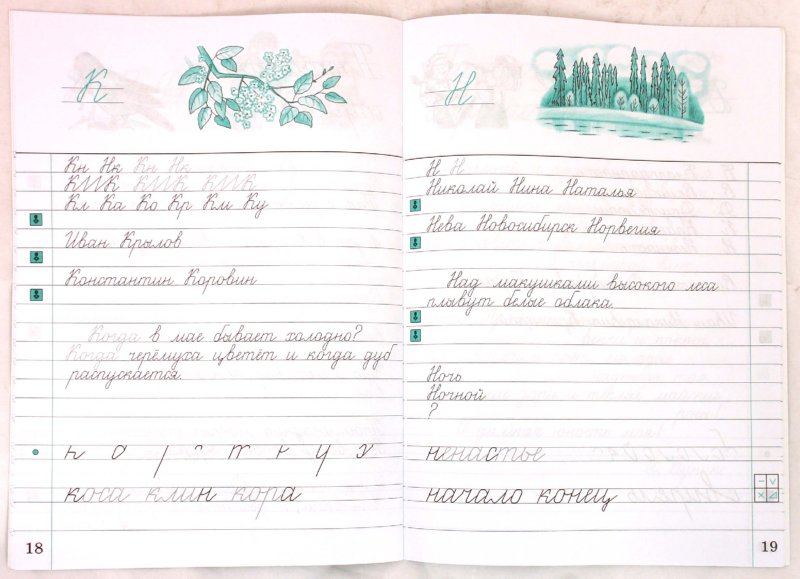 К
Кн Нк Кн Нк
КИИК КИИК КИИК
Кл Ка Ко Кр Км Ку
Иван Крылов
Константин Коровин
Когда в мае бывает холодно?
Когда черёмуха цветёт и когда дуб
распускается.
коса клин кора
18
Н
Н Н
Николай Нина Наталья
Нева Новосибирск Норвегия
Над макушками высокого леса
плывут белые облака.
Ночь
Ночной
?
ненастье
начало конец
19